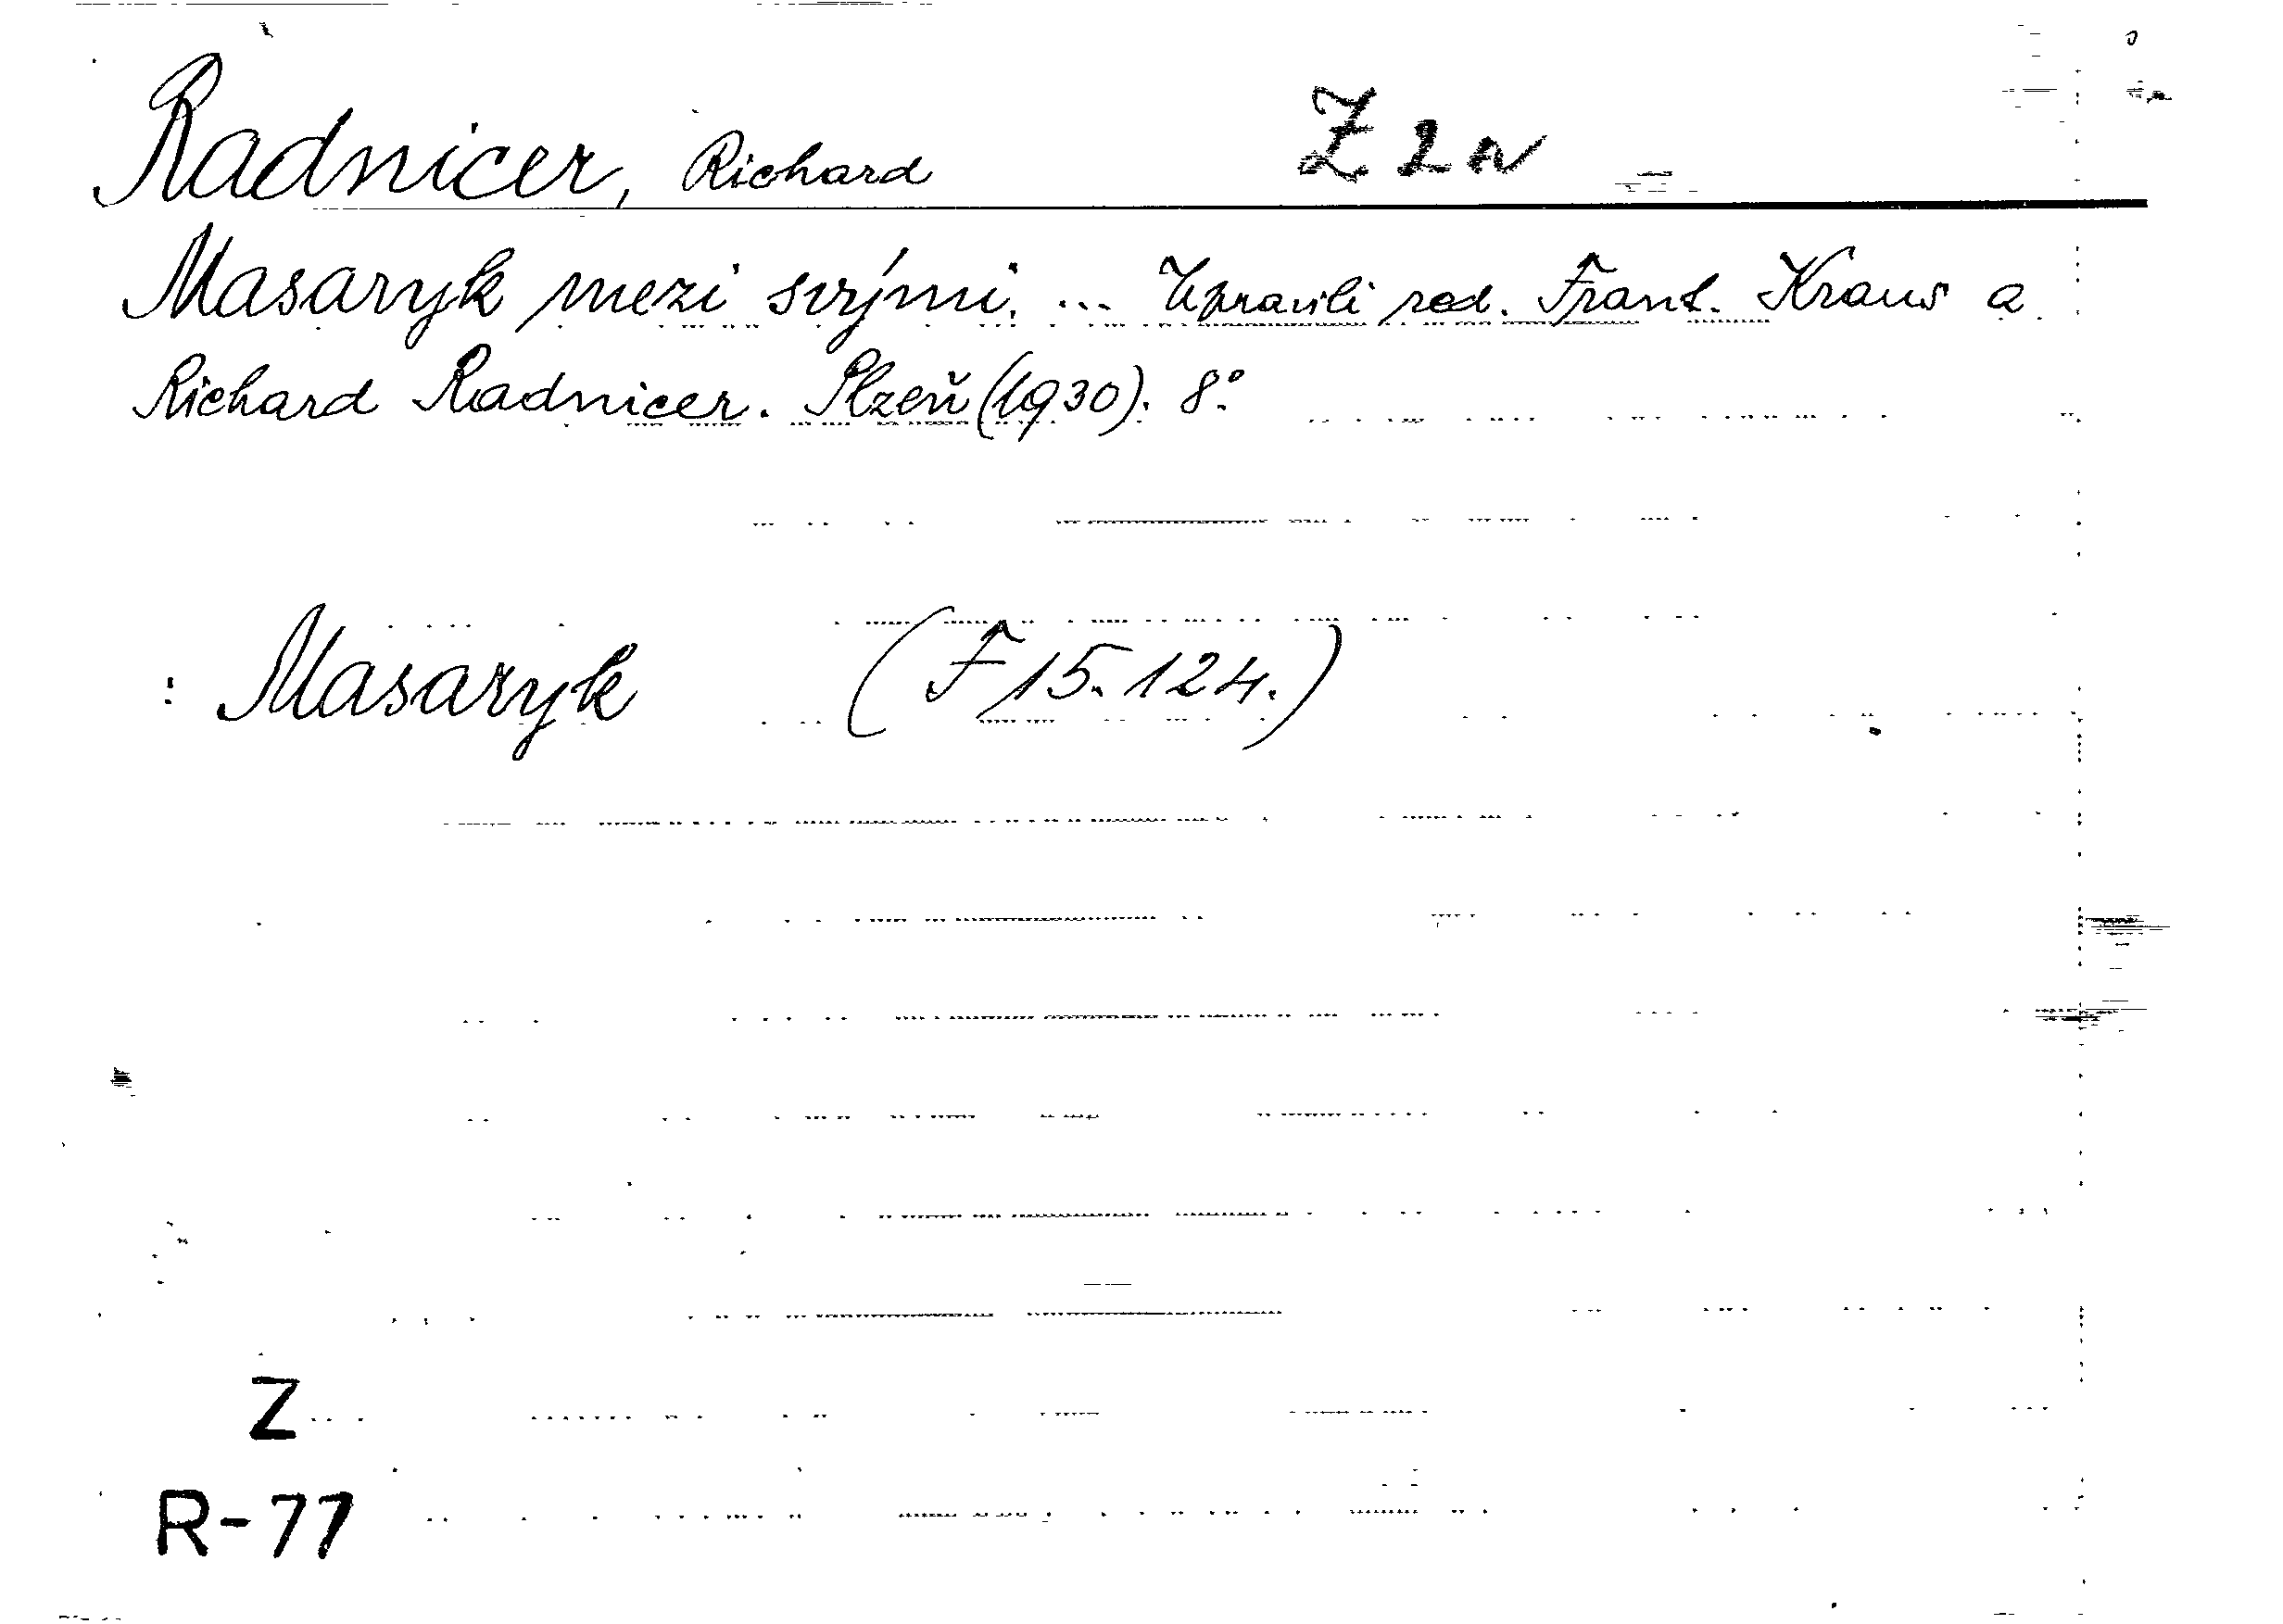 Radnicer, Richard Z 2 N
Masaryk mezi svými. ... Upravili red. Frant. Kraus a
Richard Radnicer. Plzeň (1930). 8°.
: Masaryk (F 15.124.)
Z
R-77